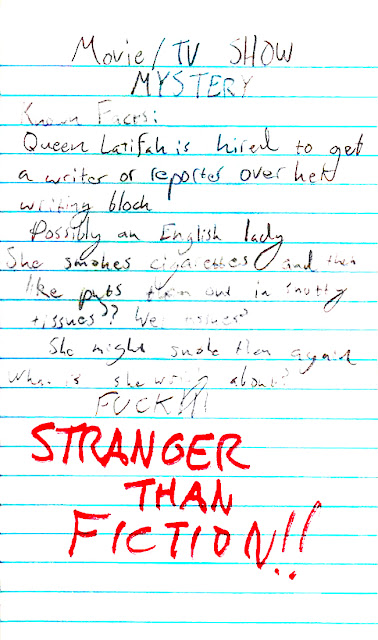 Movie/TV SHOW
MYSTERY
Known Facts:
Queen Latifah is hired to get
a writer or reporter over her
writing block
Possibly an English lady
She smokes cigarettes and then
like puts them out in snotty
tissues?? Wet tissues?
She might smoke them again
What is she writing about?
FUCK!!!
STRANGER
THAN
FICTION!!